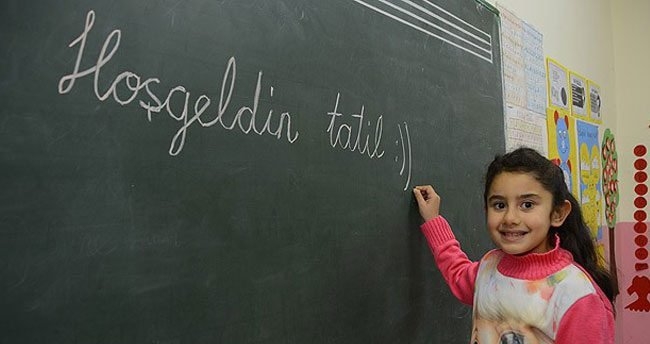 Hoşgeldin tatil :))